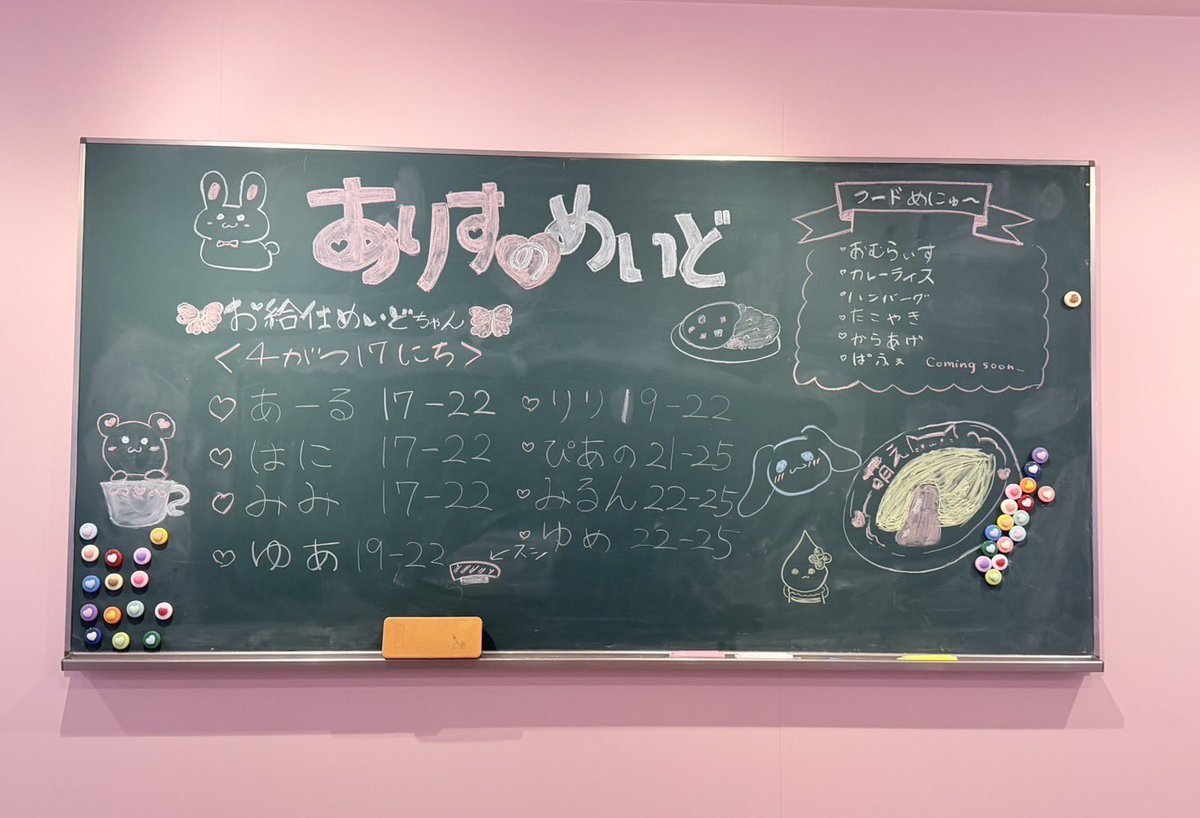 ありすのめいど
お給仕めいどちゃん
<4がつ17にち>
あーる 17-22
はに 17-22
みみ 17-22
ゆあ 19-22
りり 19-22
ぴあの 21-25
みるん 22-25
ゆめ 22-25
フードめにゅ〜
・おむらいす
・カレーライス
・ハンバーグ
・たこやき
・からあげ
・ぱふぇ Coming soon...
萌え